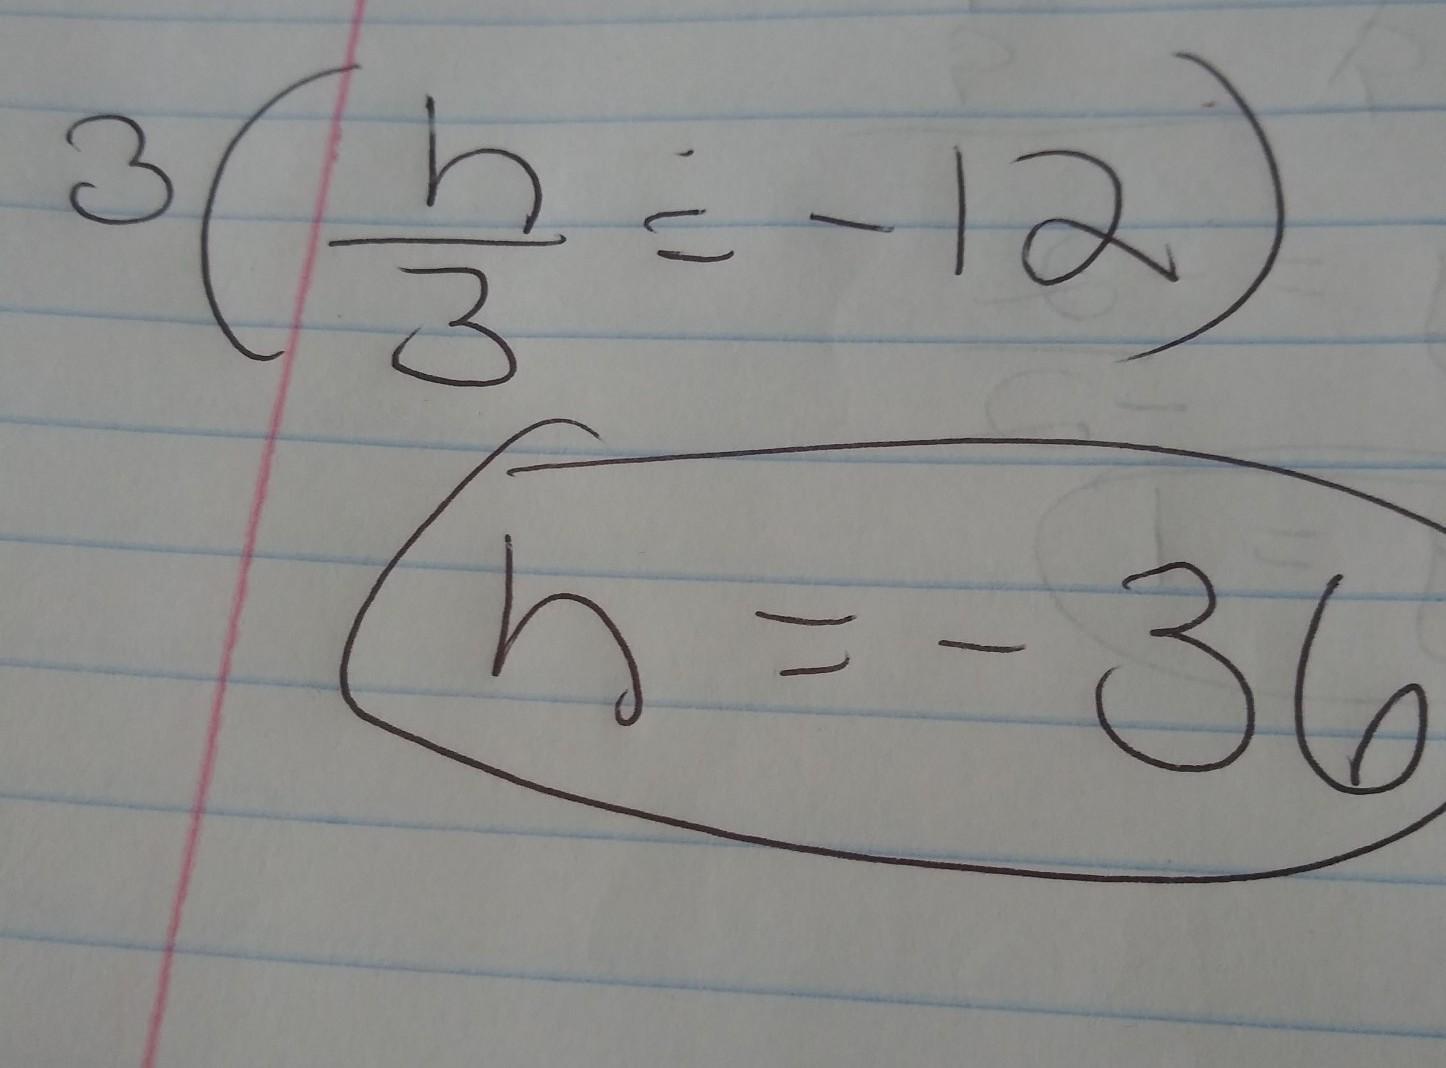 3(h/3 = -12)
h = -36